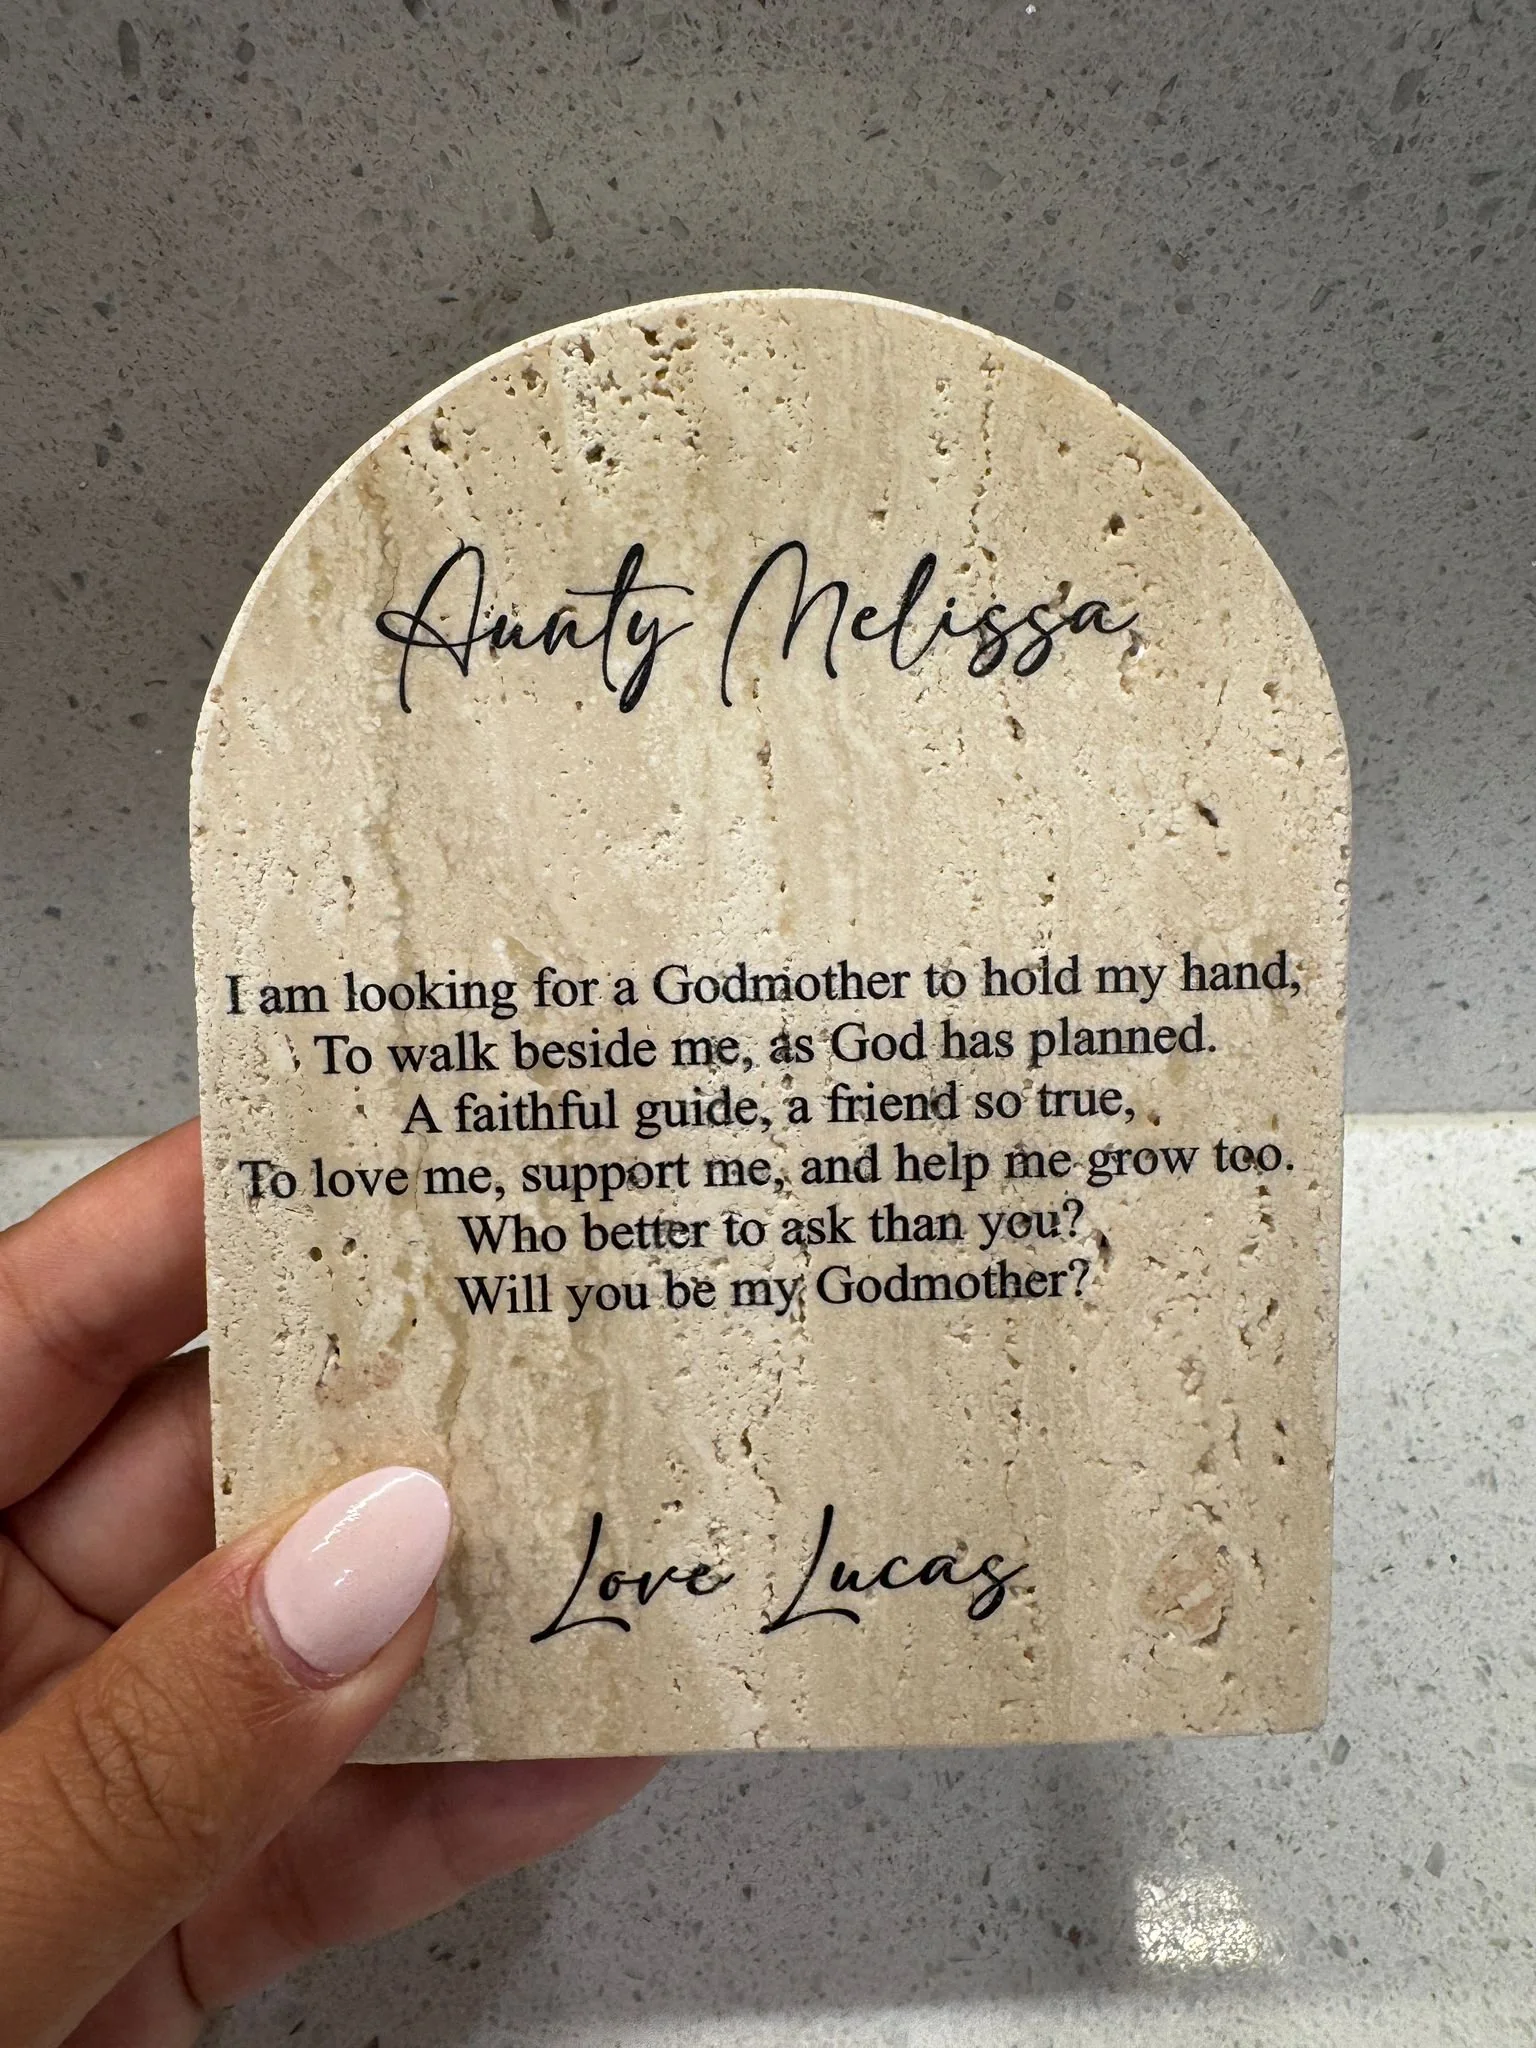 Aunty Melissa
I am looking for a Godmother to hold my hand,
To walk beside me, as God has planned.
A faithful guide, a friend so true,
To love me, support me, and help me grow too.
Who better to ask than you?
Will you be my Godmother?
Love Lucas